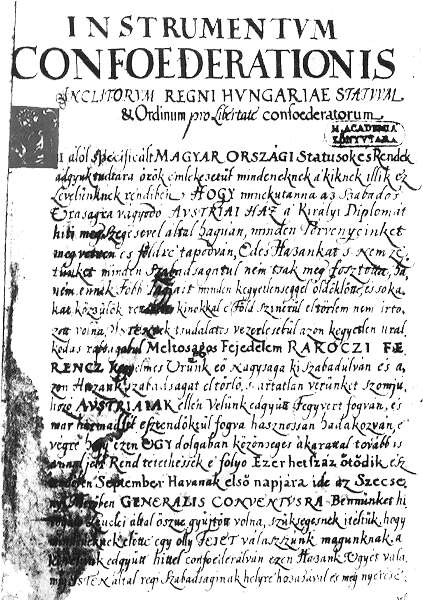 INSTRUMENTVM
CONFOEDERATIONIS
INCLITORVM REGNI HVNGARIAE STATUUM
& Ordinum pro Libertate confoederatorum
M. ACADEMIA
KÖNYVTARA
alól specificált MAGYAR ORSZÁGI Statusok es Rendek
adgyuk tudtára örök emlekesetül mindeneknek a kiknek illik ez
Levelünknek rendiben HOGY minekutanna az Szabados
vagyodo AVSTRIAI HAZ a Kiralyi Diplomát
hiti megszegesevel által hagván, minden Törvenyeinket
megvetven es földre tapodván, Edes Hazankat s Nemze
tünket minden Szabadsagatul nem tsak meg fosztotta, ha
nem ennek Fobb Tagjait minden kegyetlenseggel öldöklötte, es soka
kat közzülök kinokkal e Föld szinerül eltörlem nem irto
zott volna, ISTENnek tsudalatos vezerlesebül azon kegyetlen ural
kodas Meltosagos Fejedelem RAKOCZI FE
RENCZ kegyelmes Urunk eo Nagysaga ki Szabadulván es a
zon Hazank szabadsagat eltörlö, s artatlan verünket szomju
hozo AVSTRIAIAK ellen Velünk edgyütt Fegyvert fogván, es
mar harmadfel esztendöktül fogva hasznossan hadakozván,
vegre hogy ezen ÜGY dolgaban közönseges akarattal tovabb is
jobb Rend tetethessek e folyo Ezer hetszaz ötödik esz
tendöben September Havanak elsö napjara ide az Szecse
ny Mezöben GENERALIS CONVENTUSRA Bennünket hi
által öszve gyüjtött volna, szüksegesnek iteltük hogy
mindeneknek elötte egy olly FEJET valasszunk magunknak a
kivel edgyütt hittel confoederálván ezen Hazank Ügyet vala
mig ISTEN által regi Szabadsaginak helyre hozasaval es meg nyerese